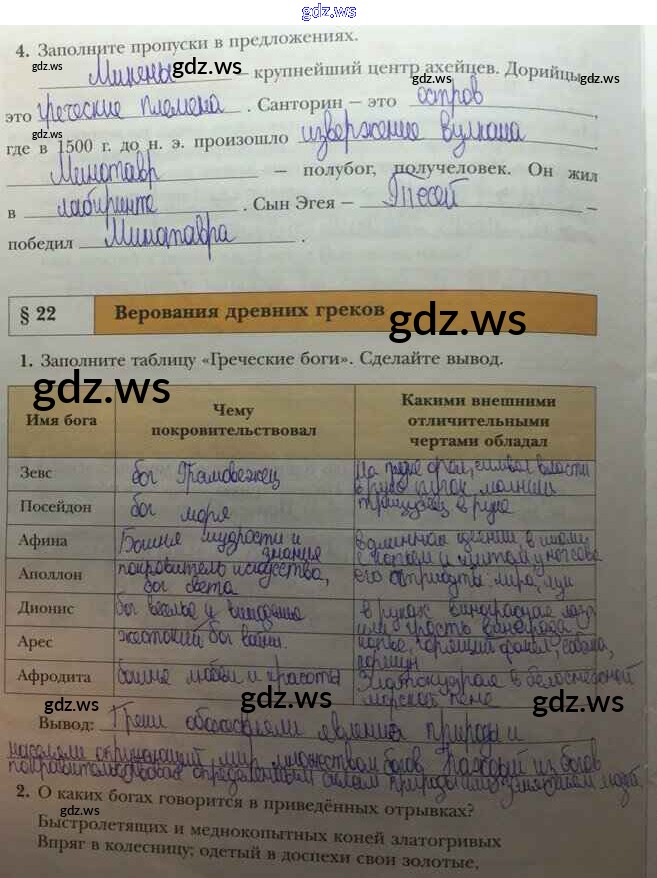 gdz.ws
4. Заполните пропуски в предложениях.
gdz.ws
Микены gdz.ws — крупнейший центр ахейцев. Дорийцы gdz.ws
это греческие племена. Санторин — это остров,
gdz.ws
где в 1500 г. до н. э. произошло извержение вулкана.
Минотавр — полубог, получеловек. Он жил
в лабиринте. Сын Эгея — Тесей —
gdz.ws gdz.ws
победил Минотавра.
§ 22 Верования древних греков
gdz.ws
1. Заполните таблицу «Греческие боги». Сделайте вывод.
gdz.ws
Имя бога
Чему покровительствовал
Какими внешними отличительными чертами обладал
Зевс бог Громовержец На троне орел, символ власти
в руке пучок молний
Посейдон бог моря трезубец в руке
Афина Богиня мудрости и знания в длинном одеянии, в шлеме
с копьем и щитом у ног сова
Аполлон покровитель искусства, бог света его атрибуты лира, лук
Дионис бог веселья и виноделия в руках виноградная лоза
или гроздь винограда
Арес жестокий бог войны. копье, горящий факел, собака,
коршун
Афродита богиня любви и красоты Златокудрая в белоснежной
морской пене
gdz.ws gdz.ws gdz.ws
Вывод: Греки обожествляли явления природы и
населяли окружающий мир множеством богов. Каждый из богов
покровительствовал определенным силам природы или занятиям людей
2. О каких богах говорится в приведённых отрывках?
gdz.ws gdz.ws
Быстролетящих и меднокопытных коней златогривых
Впряг в колесницу; одетый в доспехи свои золотые,
gdz.ws